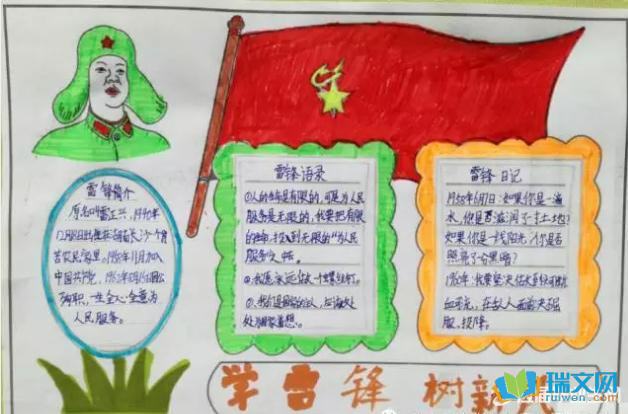 雷锋简介
原名叫雷正兴,1940年
12月18日出生在湖南长沙一个贫
苦农民家里。1960年11月加入
中国共产党,1962年8月15日因公
殉职,全心全意为
人民服务。
雷锋语录
①人的生命是有限的,可是为人民
服务是无限的,我要把有限
的生命,投入到无限的为人民
服务之中。
②我愿永远做一个螺丝钉。
处处
雷锋日记
1958年6月7日:如果你是一滴
水,你是否滋润了一寸土地?
如果你是一线阳光,你是否
照亮了
1960年:我要坚决
在敌人面前决不屈
服、投降。
学雷锋 树新
瑞文网
ruiwen.com